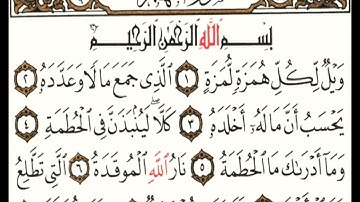 بِسْمِ اللَّهِ الرَّحْمَٰنِ الرَّحِيمِ
وَيْلٌ لِّكُلِّ هُمَزَةٍ لُّمَزَةٍ ١ الَّذِي جَمَعَ مَالًا وَعَدَّدَهُ ٢
يَحْسَبُ أَنَّ مَالَهُ أَخْلَدَهُ ٣ كَلَّا لَيُنبَذَنَّ فِي الْحُطَمَةِ ٤
وَمَا أَدْرَاكَ مَا الْحُطَمَةُ ٥ نَارُ اللَّهِ الْمُوقَدَةُ ٦ الَّتِي تَطَّلِعُ